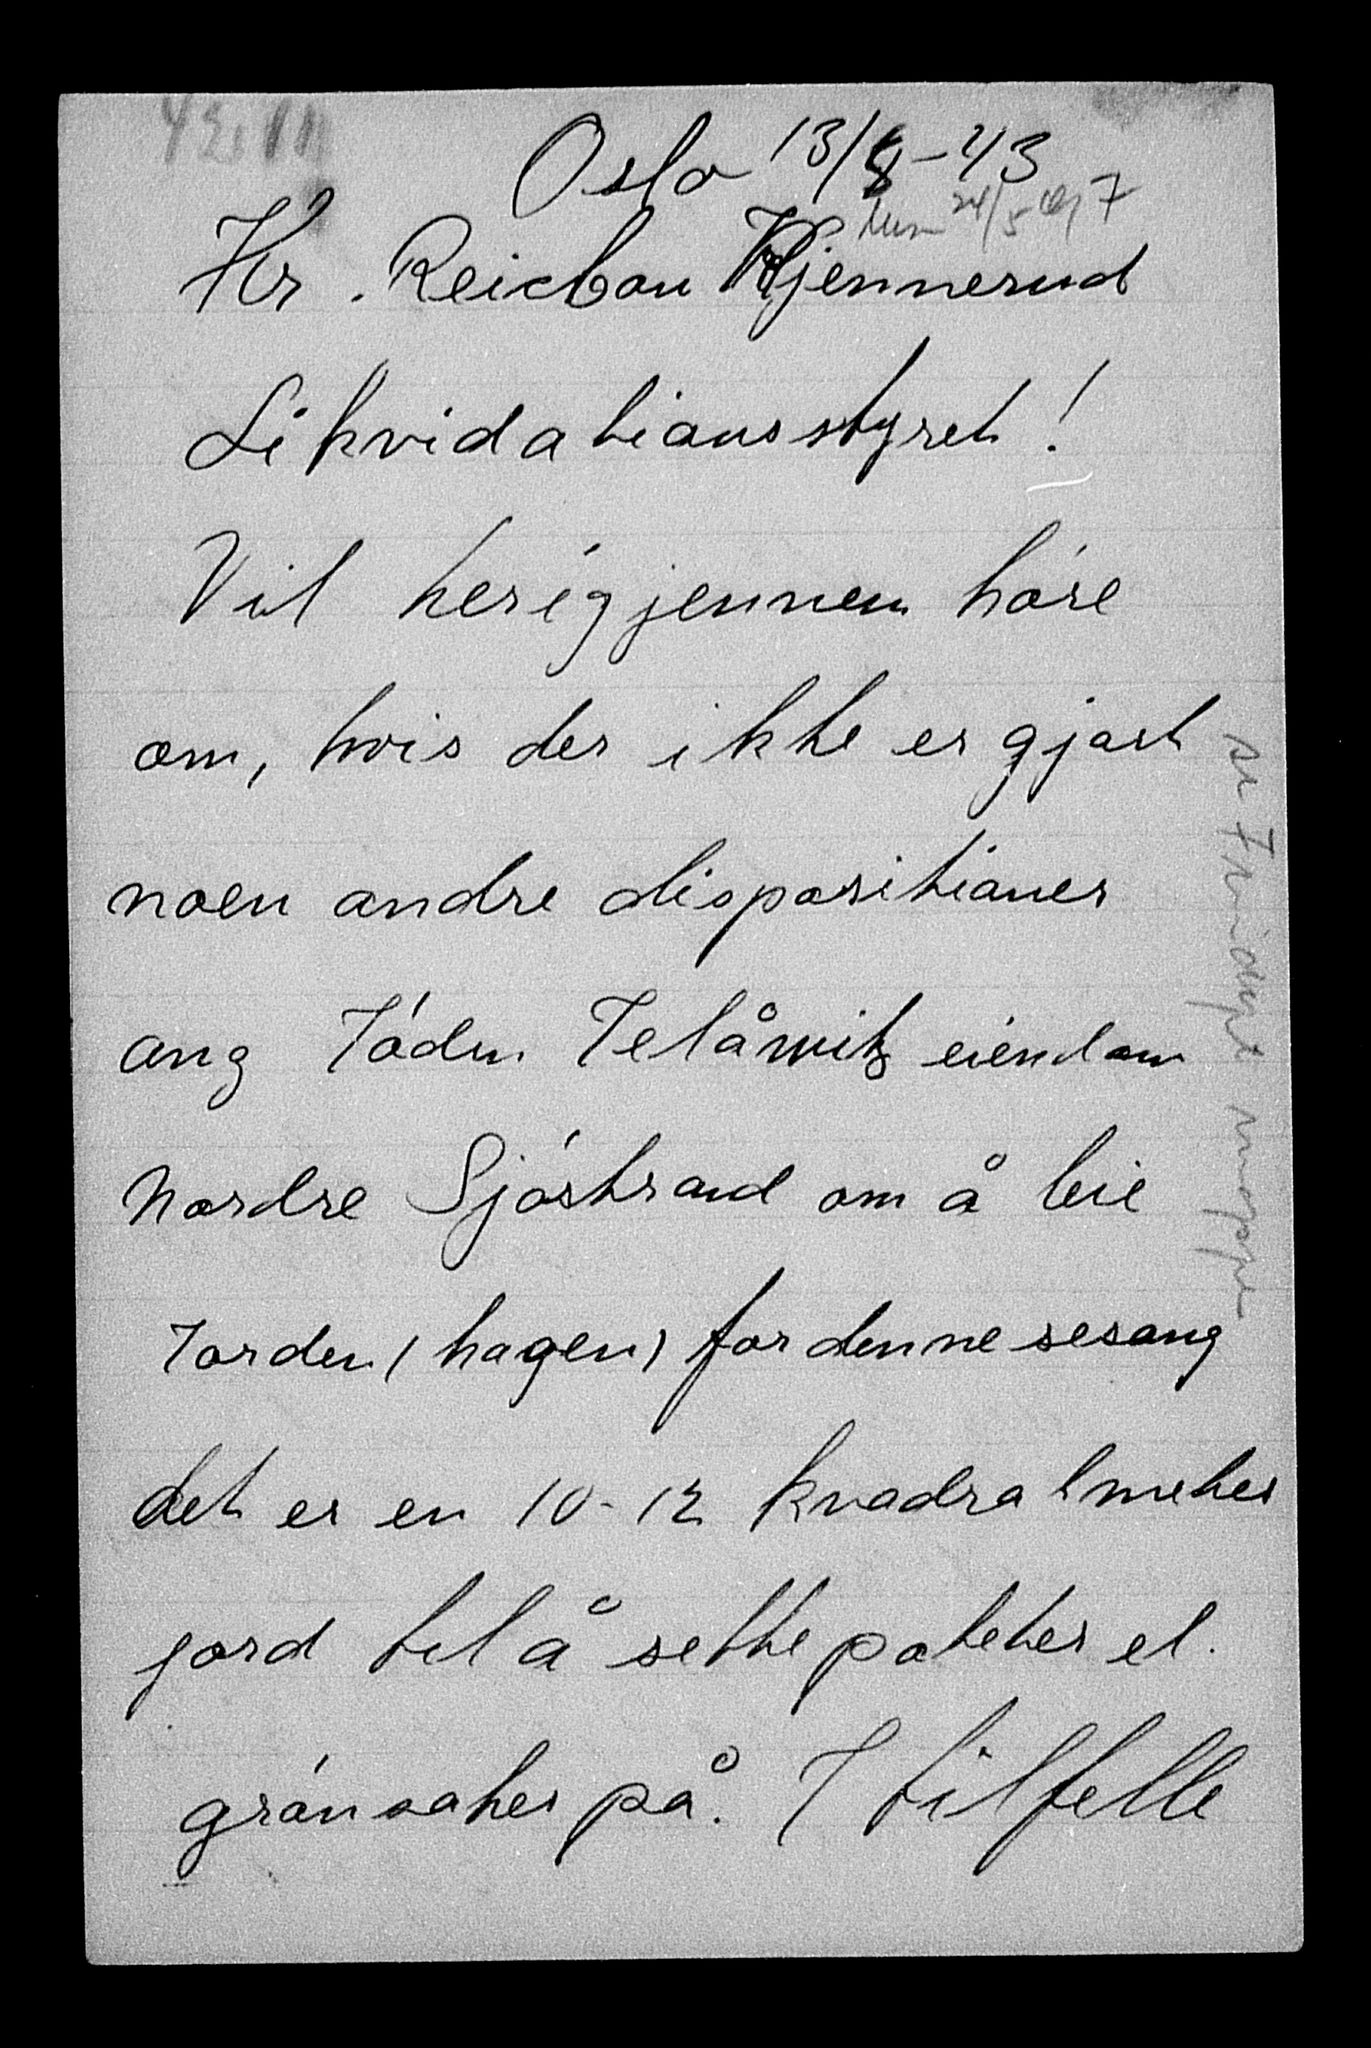 Oslo 13/5-43
24/5 7
Hr. Reicbau Kjennerud
Likvidationsstyret!
Vil herigjennem høre
om, hvis der ikke er gjort
noen andre dispositioner
ang Jøden Telåwitz eiendom
Nordre Sjøstrand om å leie
Jorden (hagen) for denne sesong
det er en 10-12 kvadratmeter
jord til å sette poteter el.
grønsaker på. I tilfelle
se mappe